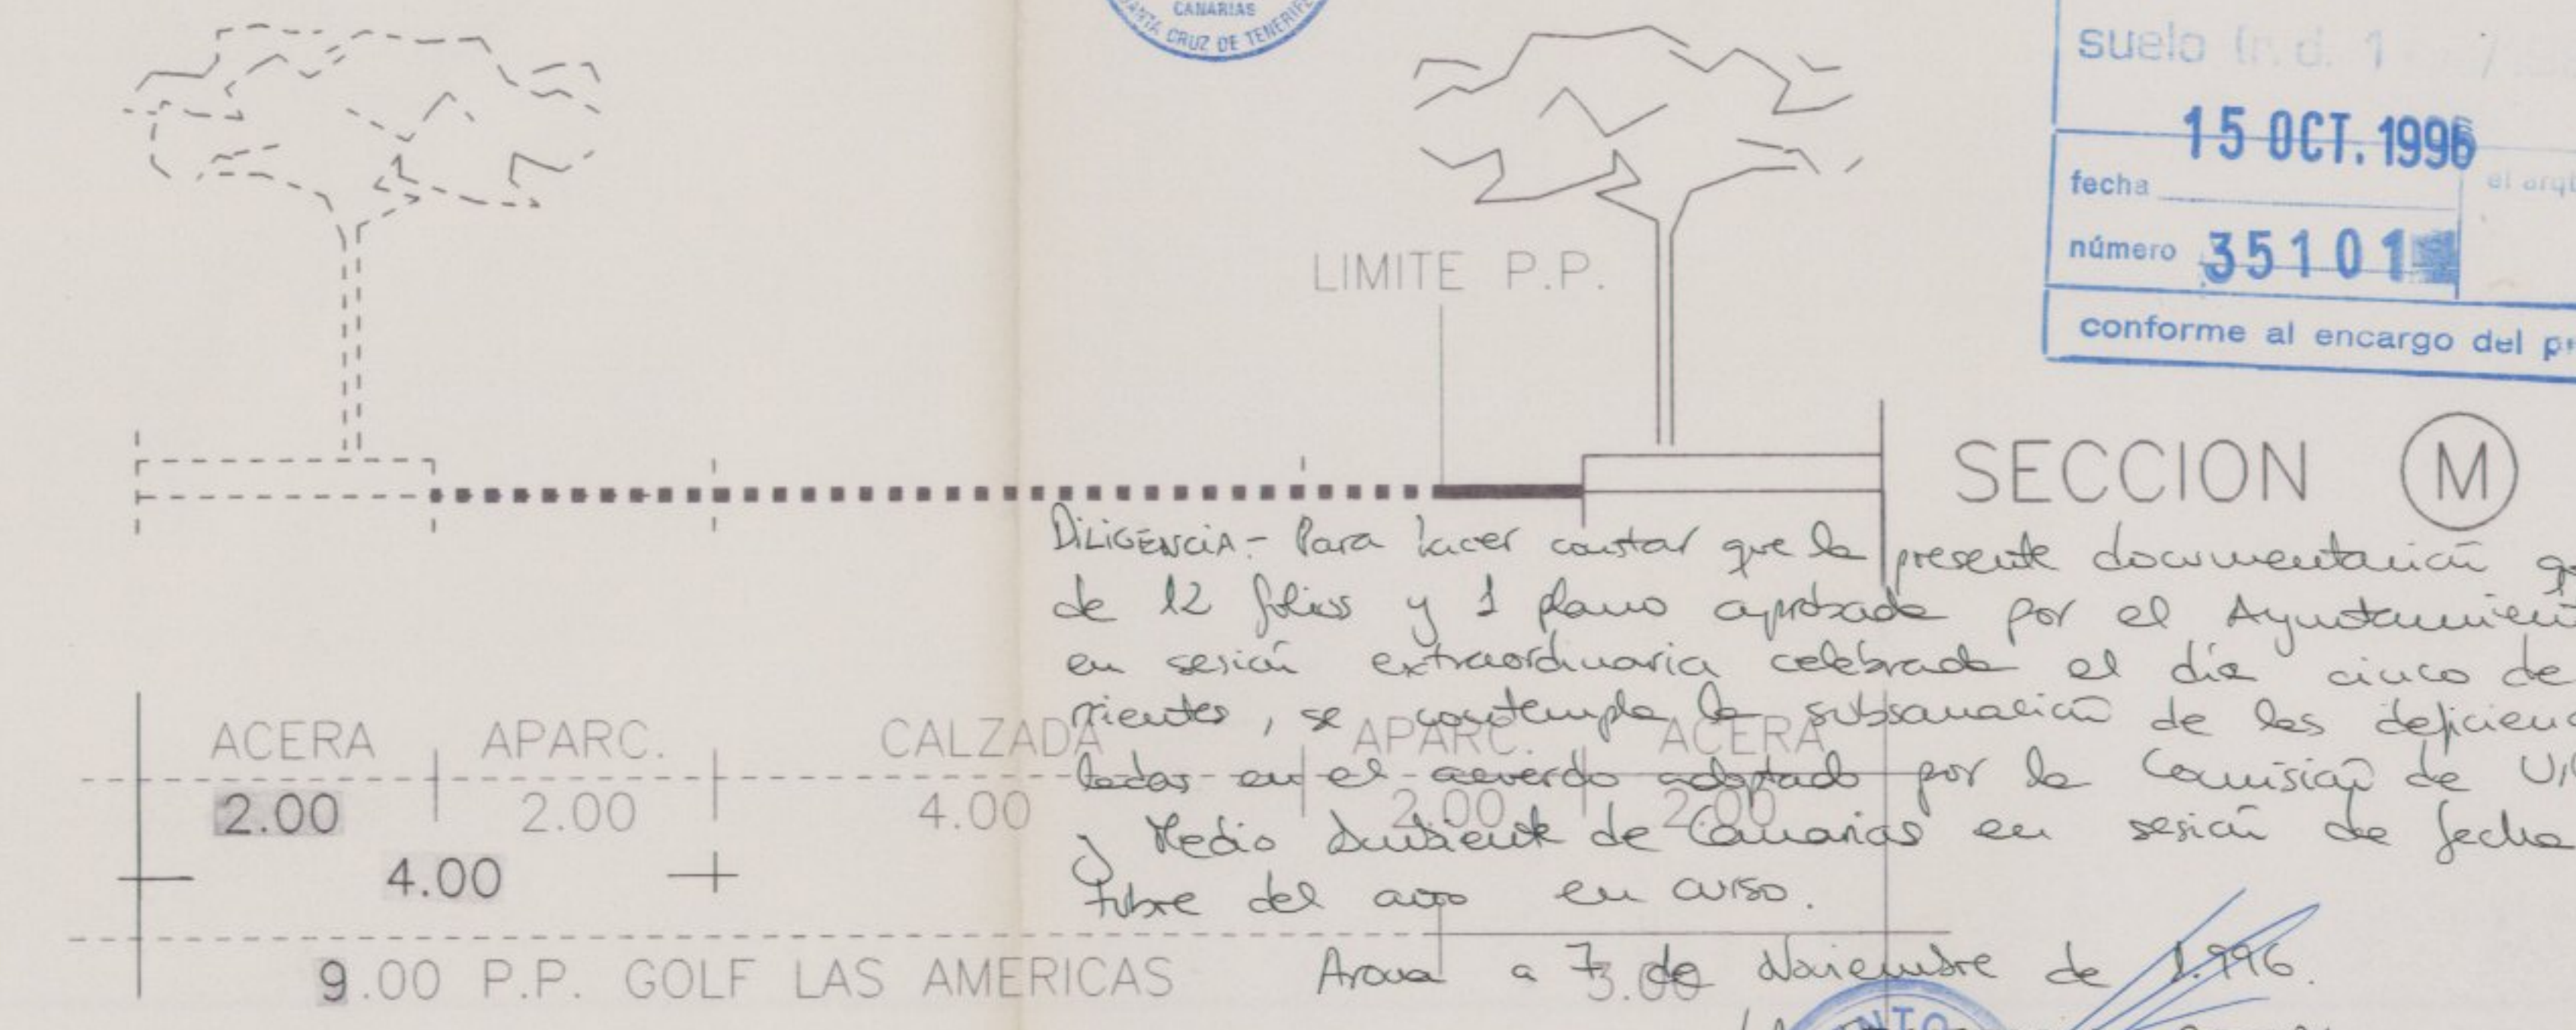 CANARIAS
SANTA CRUZ DE TENERIFE
suelo
15 OCT. 1996
fecha
número 35101
conforme al encargo del
LIMITE P.P.
SECCION M
DILIGENCIA.- Para hacer constar que la presente documentación
de 12 folios y 1 plano aprobada por el
en sesión extraordinaria celebrada el día cinco de
rrientes, se contempla la subsanación de las
ladas en el acuerdo adoptado por la Comisión de
y Medio Ambiente de Canarias en sesión de fecha
tubre del año en curso.
Arona a 7 de Noviembre de 1.996.
ACERA APARC. CALZADA APARC. ACERA
2.00 2.00 4.00 2.00 2.00
4.00
9.00 P.P. GOLF LAS AMERICAS 3.00